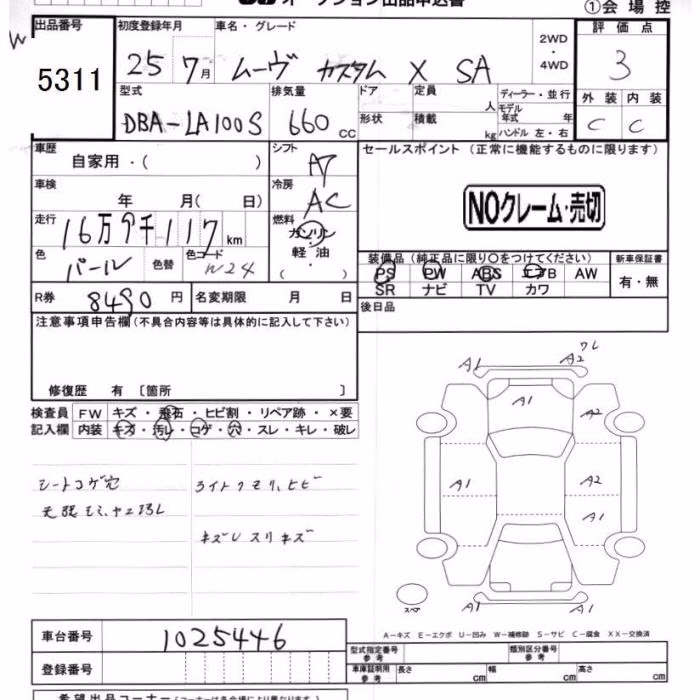 オークション出品申込書
①会場控
出品番号
5311
初度登録年月
25 7月
車名・グレード
ムーヴ カスタム X SA
2WD
・
4WD
評価点
3
型式
DBA-LA100S
排気量
660 CC
ドア
形状
定員 人
積載 kg
ディーラー・並行
モデル年式 年
ハンドル 左・右
外装 内装
C C
車歴
自家用・( )
シフト
AT
セールスポイント (正常に機能するものに限ります)
車検
年 月( 日)
冷房
AC
NOクレーム・売切
走行
16万9千117km
燃料
ガソリン
・
軽油
・
( )
色
パール
色替
色コード
W24
装備品 (純正品に限り○をつけてください)
PS PW ABS エアB AW
SR ナビ TV カワ
新車保証書
有・無
R券 8490 円
名変期限 月 日
後日品
注意事項申告欄(不具合内容等は具体的に記入して下さい)
修復歴 有 〔箇所 〕
検査員
記入欄
FW キズ・飛石・ヒビ割・リペア跡・×要
内装 キズ・汚レ・コゲ・穴・スレ・キレ・破レ
シートコゲ穴
ライトクモリ、ヒビ
キズUスリキズ
A1 A2 ワレ
A1
A2
A1
A2
A1
スペア
A1 A2
車台番号 1025446
登録番号
A-キズ E-エクボ U-凹み W-補修跡 S-サビ C-腐食 XX-交換済
型式指定番号
参考
類別区分番号
参考
車庫証明用
参考
長さ cm
幅 cm
高さ cm
希望出品コーナー(コーナーは各会場により異なります)